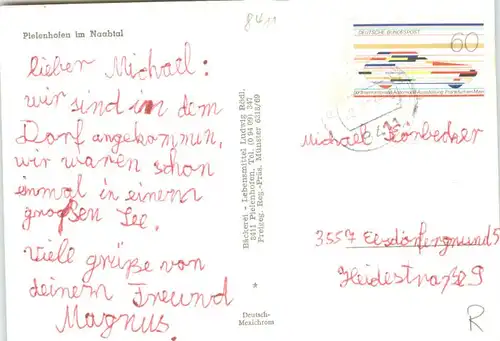 Pielenhofen im Naabtal
84 11
lieber Michael:
wir sind im dem
Dorf angekommen,
wir waren schon
einmal in einem
großen See.
Viele grüße von
deinem Freund
Magnus.
Bäckerei - Lebensmittel Ludwig Rödl,
8411 Pielenhofen, Tel. (0 94 09) 347
Freigeg. Reg.-Präs. Münster 6312/69
*
Deutsch-
Mexichrom
DEUTSCHE BUNDESPOST
60
Michael
3557 Ebsdorfergrund 5
Heidestraße 9
R